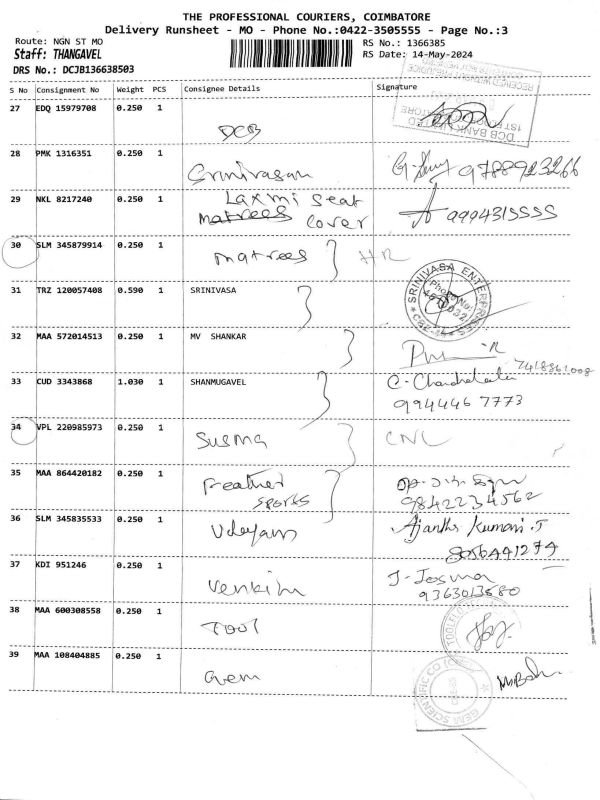 THE PROFESSIONAL COURIERS, COIMBATORE
Delivery Runsheet - MO - Phone No.:0422-3505555 - Page No.:3
Route: NGN ST MO
RS No.: 1366385
Staff: THANGAVEL
RS Date: 14-May-2024
DRS No.: DCJB136638503
S No Consignment No Weight PCS Consignee Details Signature
RECEIVED WITHOUT PREJUDICE
DCB BANK LIMITED
27 EDQ 15979708 0.250 1
DCB
28 PMK 1316351 0.250 1
Srinivasan 9788923266
29 NKL 8217240 0.250 1 Laxmi Seat
matrees cover 9994315555
30 SLM 345879914 0.250 1
matrees HR
31 TRZ 120057408 0.590 1 SRINIVASA
SRINIVASA ENTERPRISES
32 MAA 572014513 0.250 1 MV SHANKAR
7418861008
33 CUD 3343868 1.030 1 SHANMUGAVEL
9944467773
34 VPL 220985973 0.250 1
Susma CNL
35 MAA 864420182 0.250 1 Feather
sports 9842234562
36 SLM 345835533 0.250 1 Ajantha Kumari.J
Udayam 8056441274
37 KDI 951246 0.250 1 J-Josma
9363013580
38 MAA 600308558 0.250 1
Tool
39 MAA 108404885 0.250 1
Gem
GEM SCIENTIFIC CO